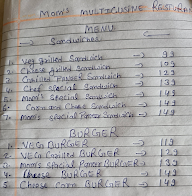 Mom's MULTICUSINE
MENU
Sandwiches
1. Veg grilled Sandwich → 99
2. Cheese grilled Sandwich → 109
3. Sandwich → 129
4. Chef special Sandwich → 139
5. Mom's special Sandwich → 149
6. Corn cheese Sandwich → 149
7. Mom's special Paneer Sandwich → 149
BURGER
1. VEG BURGER → 119
2. VEG BURGER → 129
3. Mom's special Paneer BURGER → 139
4. Cheese BURGER → 149
5. Cheese Corn BURGER → 149